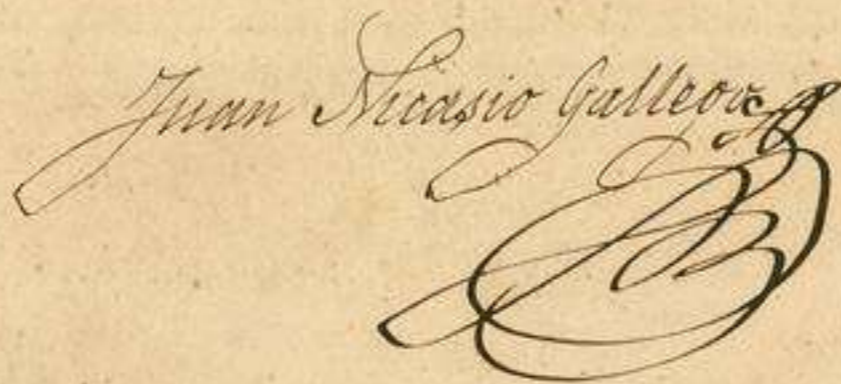 Juan Nicasio Gallego